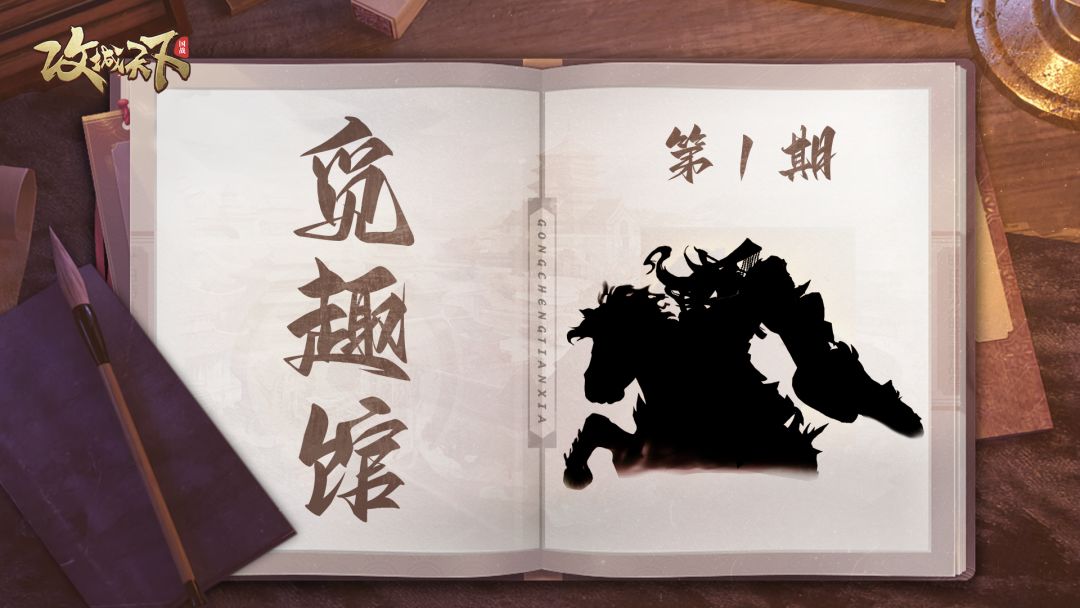 攻城天下
国战
觅趣馆
第1期
GONGCHENGTIANXIA